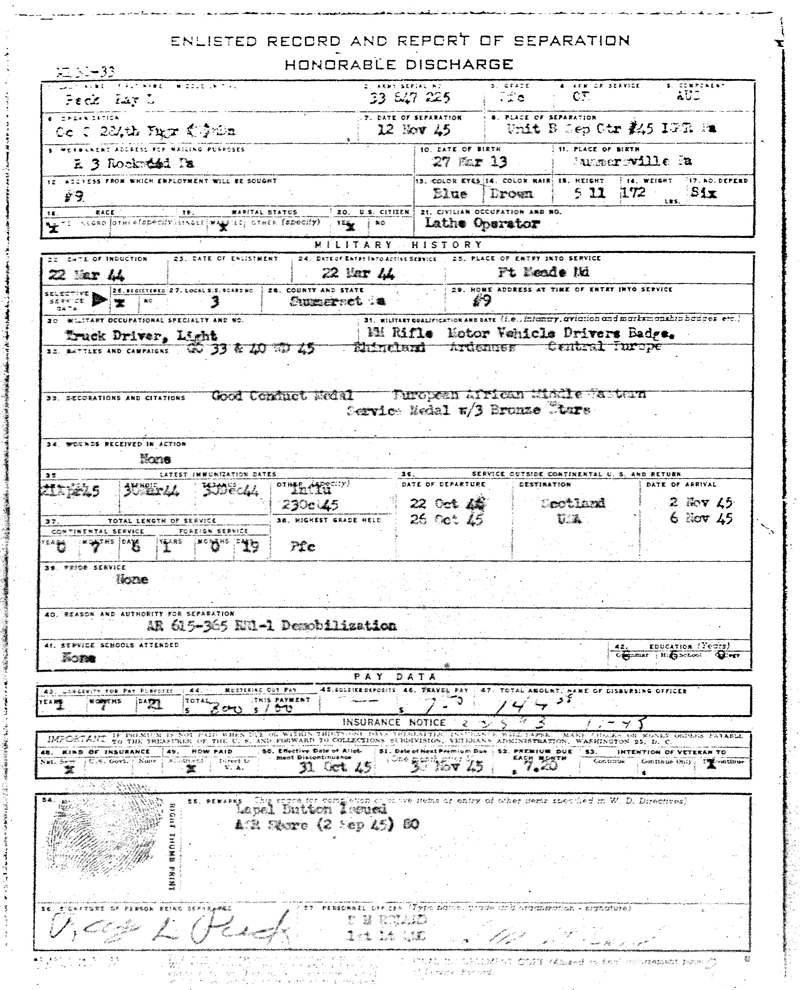 ENLISTED RECORD AND REPORT OF SEPARATION
HONORABLE DISCHARGE
2. ARMY SERIAL NO. 3. GRADE 4. ARM OR SERVICE 5. COMPONENT
Peck Ray L 33 847 225 Pfc CE AUS
6. ORGANIZATION 7. DATE OF SEPARATION 8. PLACE OF SEPARATION
12 Nov 45 Unit B Sep Ctr #45 IGMR Pa
9. PERMANENT ADDRESS FOR MAILING PURPOSES 10. DATE OF BIRTH 11. PLACE OF BIRTH
R 3 Rockwood Pa 27 Mar 13 Pa
12. ADDRESS FROM WHICH EMPLOYMENT WILL BE SOUGHT 13. COLOR EYES 14. COLOR HAIR 15. HEIGHT 16. WEIGHT 17. NO. DEPEND
#9 Blue Brown 5 11 172 LBS. Six
18. RACE 19. MARITAL STATUS 20. U.S. CITIZEN 21. CIVILIAN OCCUPATION AND NO.
X NEGRO OTHER (specify) SINGLE X OTHER (specify) YES X NO Lathe Operator
MILITARY HISTORY
22. DATE OF INDUCTION 23. DATE OF ENLISTMENT 24. DATE OF ENTRY INTO ACTIVE SERVICE 25. PLACE OF ENTRY INTO SERVICE
22 Mar 44 22 Mar 44 Ft Meade Md
SELECTIVE SERVICE DATA 26. REGISTERED 27. LOCAL S.S. BOARD NO. 28. COUNTY AND STATE 29. HOME ADDRESS AT TIME OF ENTRY INTO SERVICE
X NO 3 Pa #9
30. MILITARY OCCUPATIONAL SPECIALTY AND NO. 31. MILITARY QUALIFICATION AND DATE (i.e., infantry, aviation and marksmanship badges, etc.)
Truck Driver, Light MM Rifle Motor Vehicle Drivers Badge.
32. BATTLES AND CAMPAIGNS GO 33 & 40 WD 45 Rhineland Ardennes Central Europe
33. DECORATIONS AND CITATIONS Good Conduct Medal European African Middle Eastern
Service Medal w/3 Bronze Stars
34. WOUNDS RECEIVED IN ACTION
None
35. LATEST IMMUNIZATION DATES 36. SERVICE OUTSIDE CONTINENTAL U.S. AND RETURN
OTHER (specify) DATE OF DEPARTURE DESTINATION DATE OF ARRIVAL
21Apr45 30Mar44 30Dec44 Influ
23Oct45 22 Oct 44 Scotland 2 Nov 45
37. TOTAL LENGTH OF SERVICE 38. HIGHEST GRADE HELD 26 Oct 45 USA 6 Nov 45
CONTINENTAL SERVICE FOREIGN SERVICE
YEARS MONTHS DAYS YEARS MONTHS DAYS
0 7 6 1 0 19 Pfc
39. PRIOR SERVICE
None
40. REASON AND AUTHORITY FOR SEPARATION
AR 615-365 RR1-1 Demobilization
41. SERVICE SCHOOLS ATTENDED 42. EDUCATION (Years)
None Grammar High School College
PAY DATA
43. LONGEVITY FOR PAY PURPOSES 44. MUSTERING OUT PAY 45. SOLDIER DEPOSITS 46. TRAVEL PAY 47. TOTAL AMOUNT, NAME OF DISBURSING OFFICER
YEARS 1 MONTHS 7 DAYS 21 TOTAL $ 300 THIS PAYMENT $ 100
INSURANCE NOTICE
IMPORTANT IF PREMIUM IS NOT PAID WHEN DUE OR WITHIN THIRTY-ONE DAYS THEREAFTER, INSURANCE WILL LAPSE. MAKE CHECKS OR MONEY ORDERS PAYABLE
TO THE TREASURER OF THE U. S. AND FORWARD TO COLLECTIONS SUBDIVISION, VETERANS ADMINISTRATION, WASHINGTON 25, D. C.
48. KIND OF INSURANCE 49. HOW PAID 50. Effective Date of Allotment Discontinuance 51. Date of Next Premium Due 52. PREMIUM DUE EACH MONTH 53. INTENTION OF VETERAN TO
Nat. Serv. U.S. Govt. None Allotment Direct to V. A. (One month after 50) Continue Continue Only Discontinue
X X 31 Oct 45 30 Nov 45 $ 7.20 $ X
54. RIGHT THUMB PRINT
55. REMARKS (This space for completion of above items or entry of other items specified in W. D. Directives)
Lapel Button Issued
ASR Score (2 Sep 45) 80
56. SIGNATURE OF PERSON BEING SEPARATED 57. PERSONNEL OFFICER (Type name, grade and organization - signature)
Ray L Peck
1st Lt